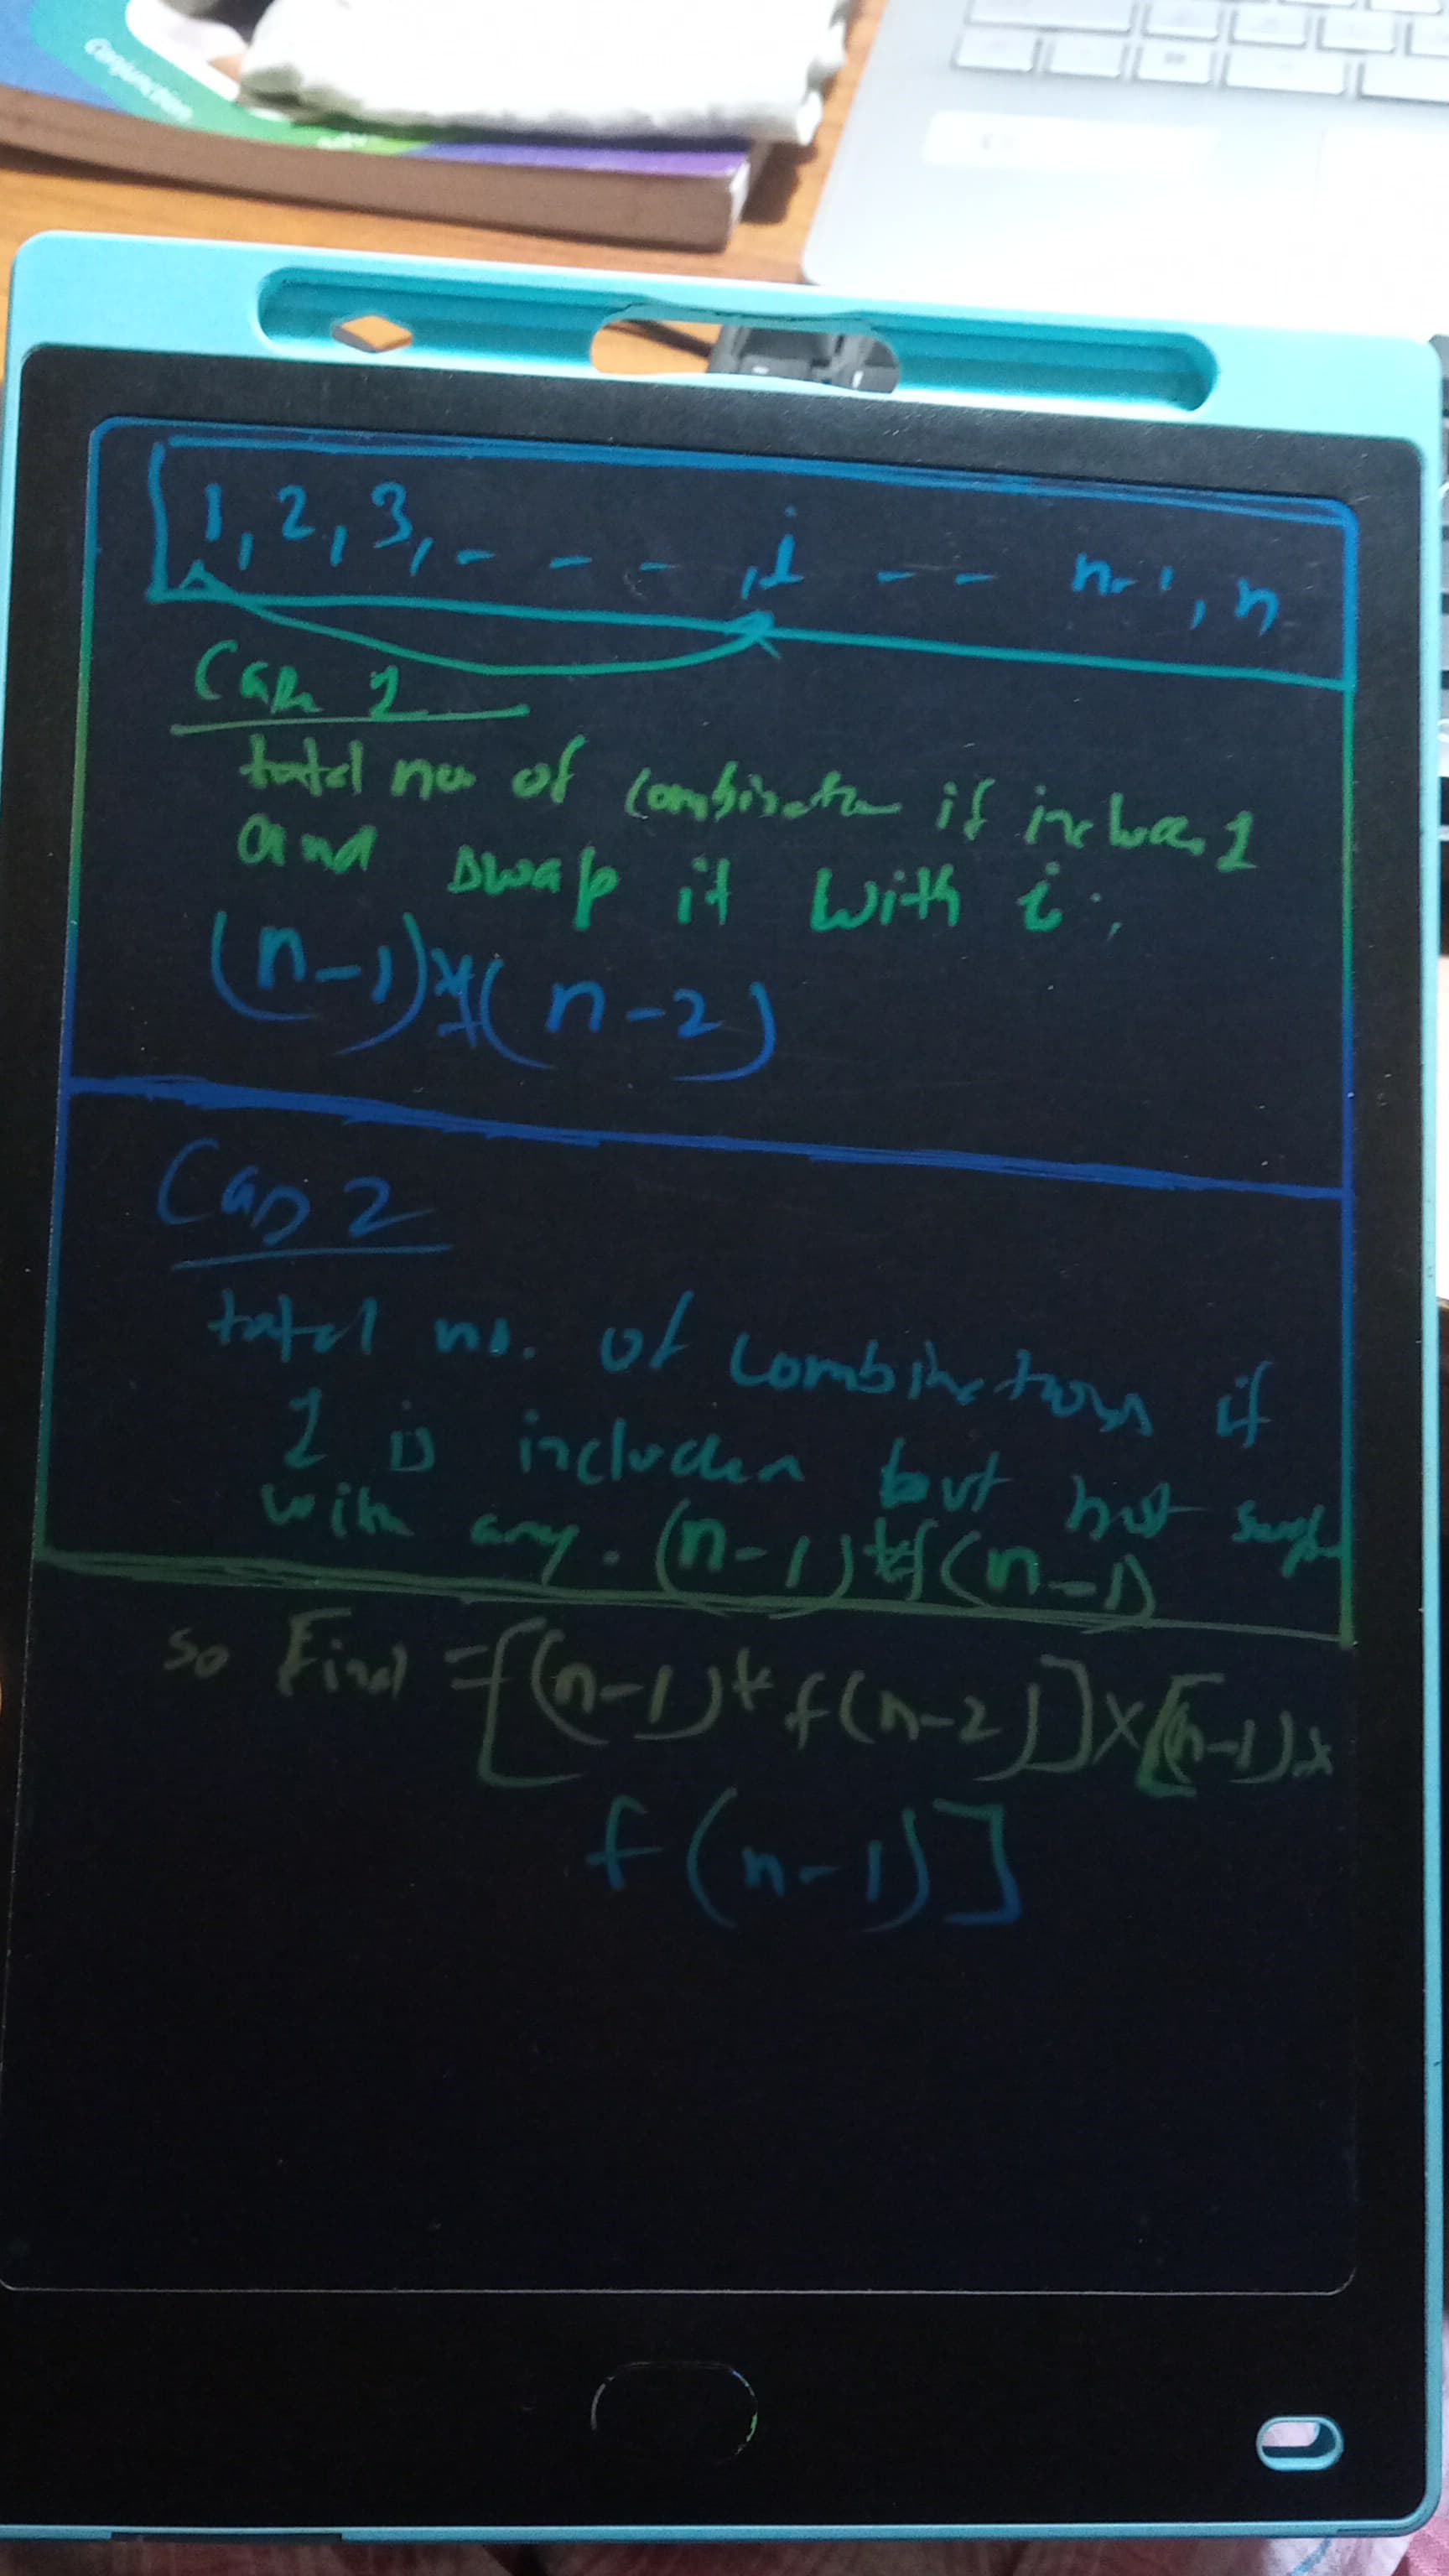 Conjunction
1, 2, 3, - - - , i - - n-1, n
Case 1
total no of combination if include 1
and swap it with i.
(n-1)*f(n-2)
Case 2
total no. of combinations if
1 is included but not swap
with any. (n-1)*f(n-1)
so Final = [(n-1)* f(n-2)] X [(n-1) x
f(n-1)]